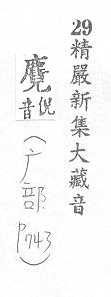 29精嚴新集大藏音
麑倪音(广部P743)